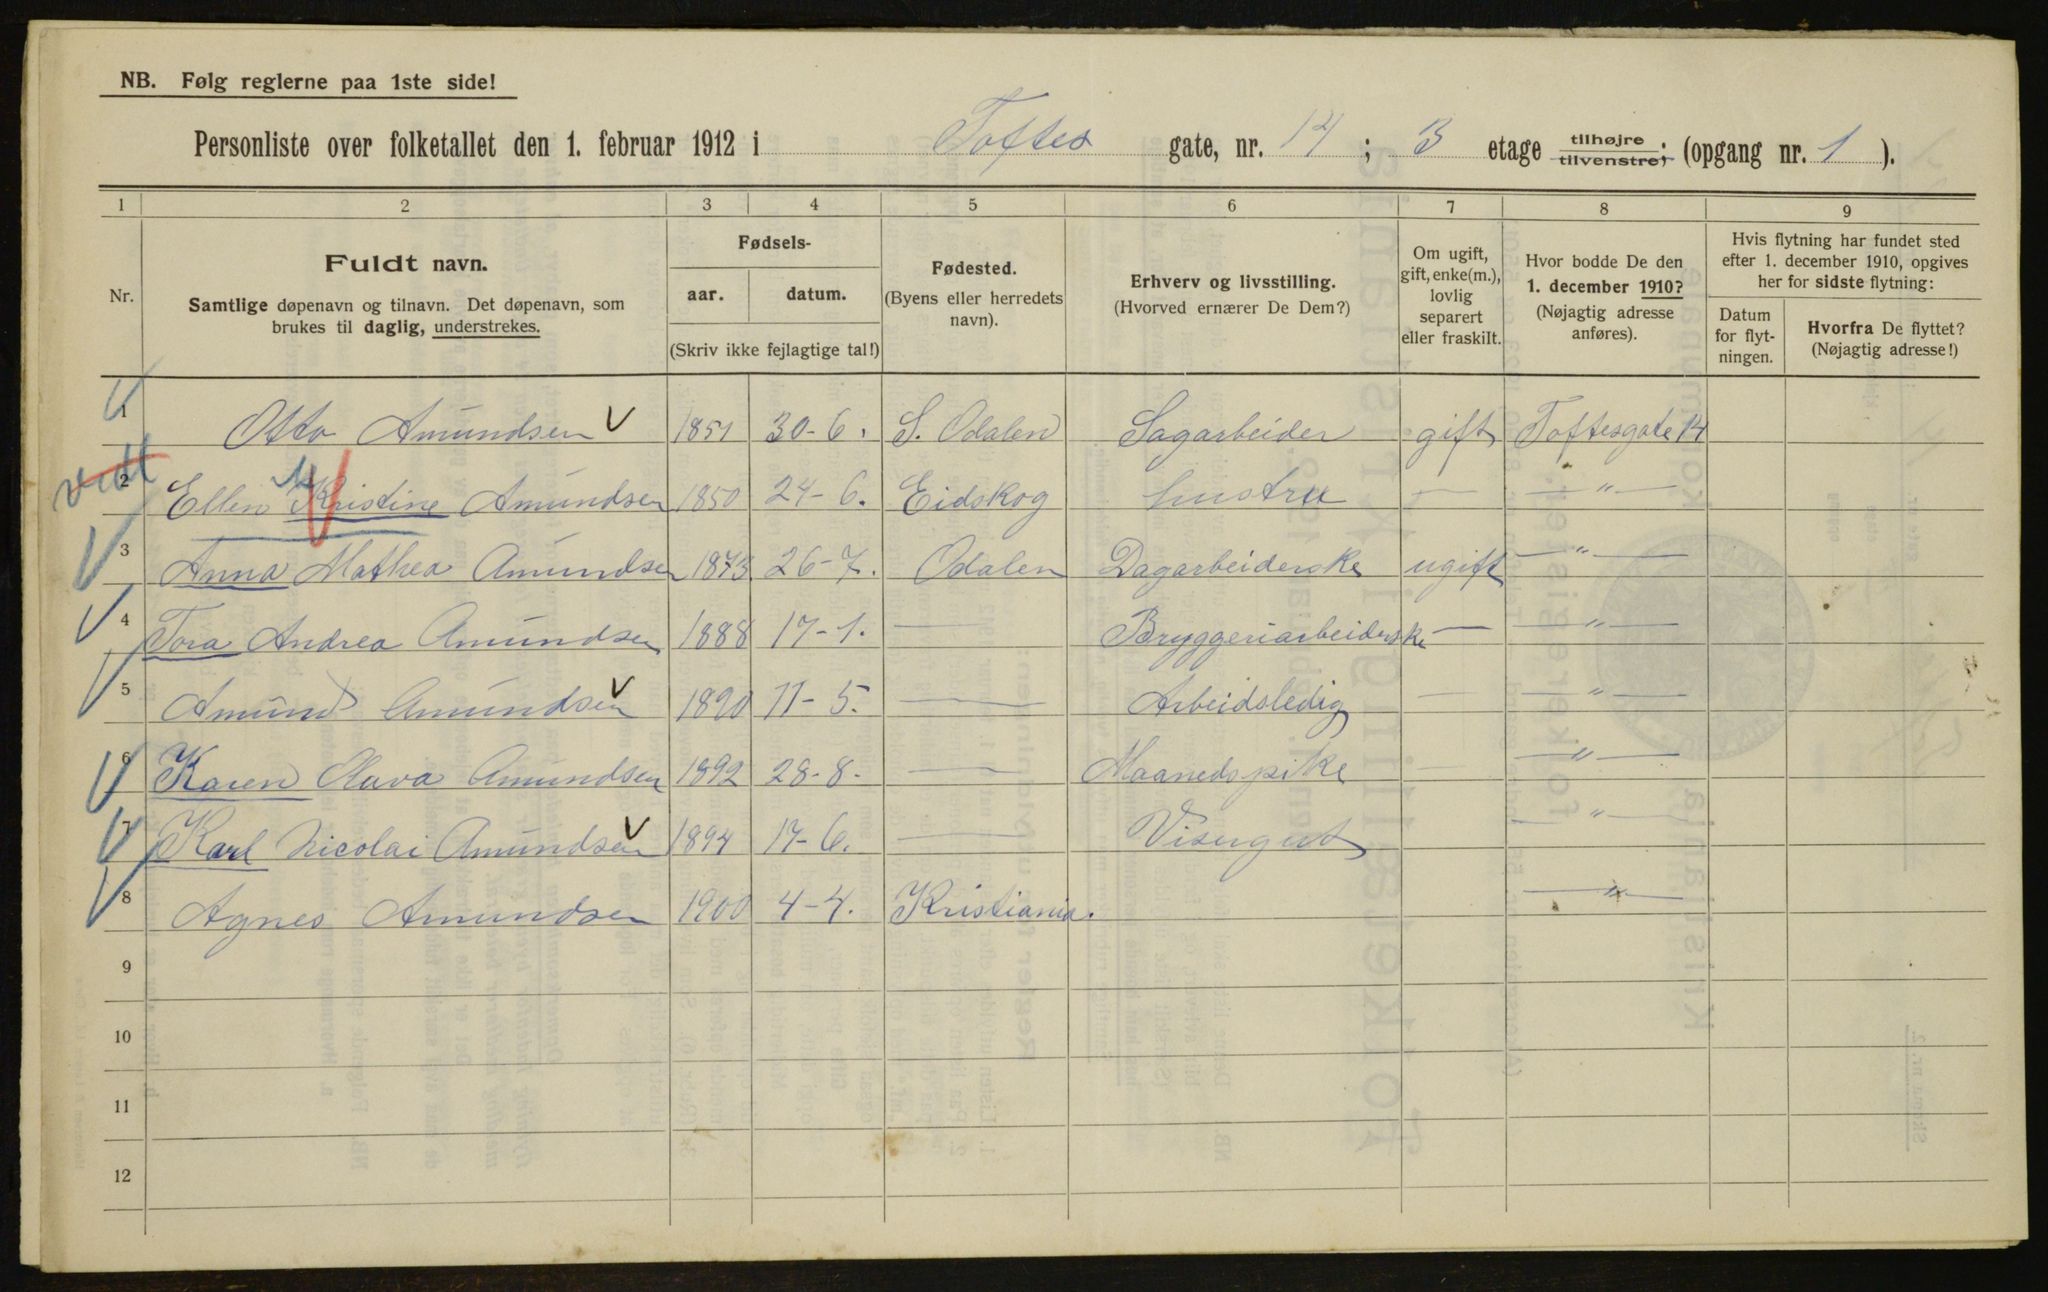 NB. Følg reglerne paa 1ste side!
Personliste over folketallet den 1. februar 1912 i Toftes gate, nr. 14 ; 3 etage tilhøjre tilvenstre; (opgang nr. 1 ).
1 2 3 4 5 6 7 8 9
Nr.
Fuldt navn.
Samtlige døpenavn og tilnavn. Det døpenavn, som
brukes til daglig, understrekes.
Fødsels-
aar. datum.
(Skriv ikke fejlagtige tal!)
Fødested.
(Byens eller herredets
navn).
Erhverv og livsstilling.
(Hvorved ernærer De Dem?)
Om ugift,
gift, enke(m.),
lovlig
separert
eller fraskilt.
Hvor bodde De den
1. december 1910?
(Nøjagtig adresse
anføres).
Hvis flytning har fundet sted
efter 1. december 1910, opgives
her for sidste flytning:
Datum
for flyt-
ningen.
Hvorfra De flyttet?
(Nøjagtig adresse!)
1 Otto Amundsen 1851 30-6. S. Odalen Sagarbeider gift Toftesgate 14
2 Ellen Kristine Amundsen 1850 24-6. Eidskog hustru — — " —
3 Anna Mathea Amundsen 1873 26-7. Odalen Dagarbeiderske ugift — " —
4 Tora Andrea Amundsen 1888 17-1. — Bryggeriarbeiderske — — " —
5 Amund Amundsen 1890 11-5. — Arbeidsledig — — " —
6 Karen Olava Amundsen 1892 28-8. — Maanedspike — " —
7 Karl Nicolai Amundsen 1894 17-6. — Visergut — " —
8 Agnes Amundsen 1900 4-4. Kristiania. — " —
9
10
11
12